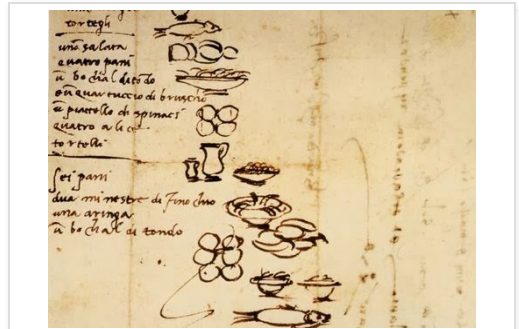 tortegli
una salata
quatro pani
ũ bochal di tõdo
e ũ quartuccio di bruscho
ũ piattello di spinaci
quatro alice
tortelli
sei pani
dua minestre di finochio
una aringa
ũ bochal di tondo